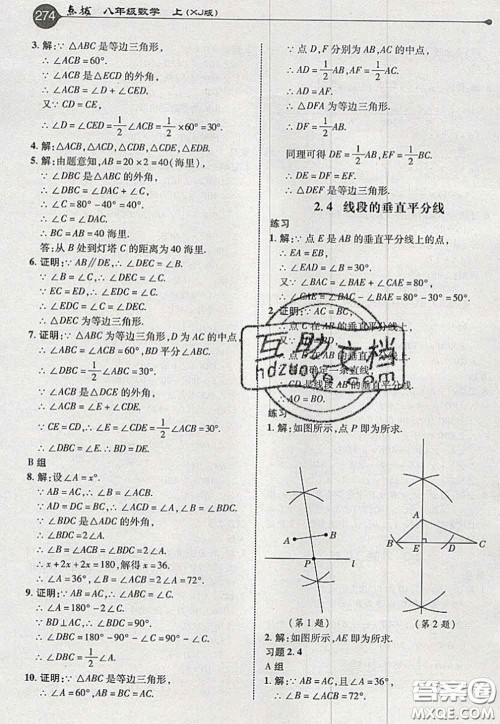 274 点拨 八年级数学 上(XJ版)
3. 解:∵ △ABC 是等边三角形,
∴ ∠ACB=60°.
∵ ∠ACB 是 △ECD 的外角,
∴ ∠ACB=∠D+∠CED.
又∵ CD=CE,
∴ ∠D=∠CED=1/2∠ACB=1/2×60°=30°.
4. 解:∠ACD,∠ACB,∠CDB,∠CDE,∠EDB.
5. 解:由题意知,AB=20×2=40(海里).
∵ ∠DBC 是 △ABC 的外角,
∴ ∠DBC=∠DAC+∠C.
∴ ∠C=80°-40°=40°.
∴ ∠C=∠DAC=40°.
∴ BC=AB=40 海里.
答:从 B 处到灯塔 C 的距离为 40 海里.
6. 证明:∵ AB∥DE,
∴ ∠DEC=∠B=60°.
又∵ ∠C=60°,
∴ △DEC 为等边三角形.
7. 证明:∵ △ABC 为等边三角形,D 为 AC 中的点,
∴ ∠ABC=∠ACB=60°,BD 平分 ∠ABC.
∴ ∠DBC=30°.
∵ ∠ACB 是 △DCE 的外角,
∴ ∠ACB=∠CDE+∠E.
∵ CE=CD,∴ ∠E=1/2∠ACB=30°.
∴ ∠DBC=∠E.∴ BD=DE.
B 组
8. 解:设 ∠A=x°.
∵ AB=AC,∴ ∠ABC=∠ACB.
∵ AD=BD,∴ ∠A=∠ABD.
∵ ∠BDC 是 △ABD 的外角,
∴ ∠BDC=∠A+∠ABD=2∠A.
∵ BD=BC,∴ ∠BDC=∠C.
∴ ∠B=∠ACB=∠BDC=2∠A.
∴ x+2x+2x=180,解得 x=36.
∴ ∠A=36°,∠B=∠ACB=72°.
9. 证明:∵ AB=AC,∴ ∠ABC=∠C.
∴ ∠A=180°-2∠C.
∵ BD⊥AC,∴ ∠BDC=90°.
∴ ∠DBC=180°-90°-∠C=90°-∠C.
∴ ∠DBC=1/2∠A.
10. 证明:∵ △ABC 是等边三角形,
∴ ∠A=∠B=∠C=60°,AB=AC.
∵ AD=1/2AB,AF=1/2AC,
∴ AD=AF.
∴ △DFA 为等边三角形.
∴ DF=AD=1/2AB.
同理可得 DE=1/2AB,EF=1/2AB.
∴ DE=DF=EF.
∴ △DEF 是等边三角形.
2.4 线段的垂直平分线
练习
1. 解:∵ 点 E 是 AB 的垂直平分线上的点,
∴ EA=EB,
∴ ∠EAD=∠B=30°.
又∵ ∠BAC=∠BAE+∠CAE=80°,
∴ ∠CAE=∠BAC-∠BAE=80°-30°=50°.
2. 证明:∵ AC=BC,
∴ 点 C 在 AB 的垂直平分线上.
确定一条直线,
∴ CD 是线段 AB 的垂直平分线.
∴ AO=BO.
练习
1. 解:如图所示,点 P 即为所求.
A B P l
A B E D C
(第 1 题) (第 2 题)
2. 解:如图所示,AE 即为所求.
习题 2.4
A 组
1. 解:∵ AB=AC,∠A=36°,
∴ ∠B=∠ACB=72°.
互助文档
hdzuoye.com
答案圈
MXQE.COM